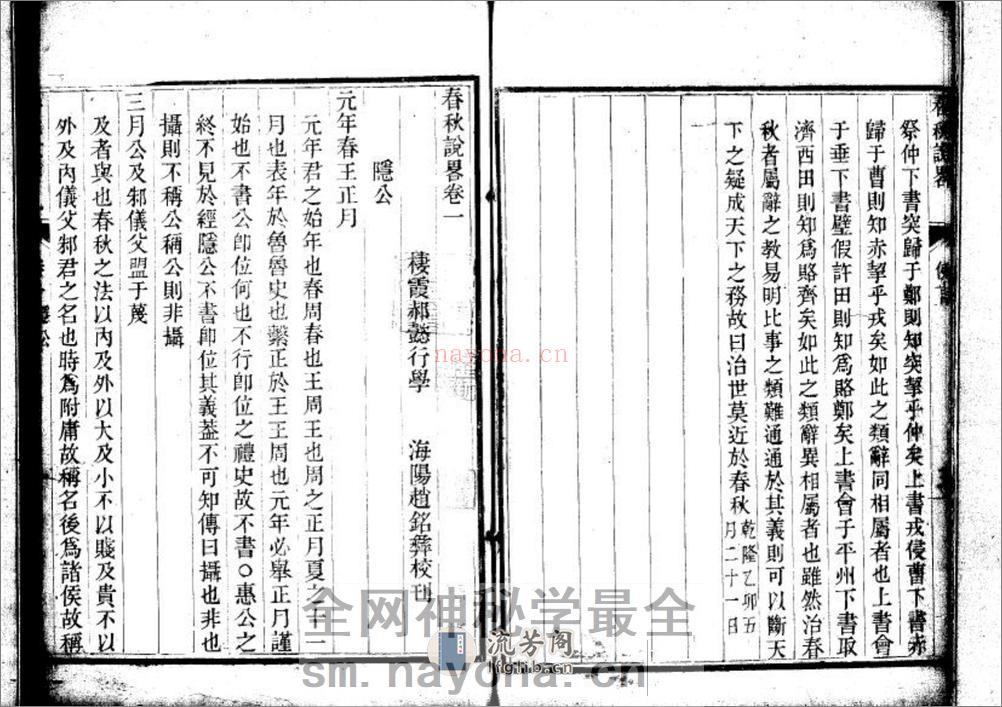 祭仲下書突歸于鄭則知突挈乎仲矣上書戎侵曹下書赤
歸于曹則知赤挈乎戎矣如此之類辭同相屬者也上書會
于垂下書璧假許田則知爲賂鄭矣上書會于平州下書取
濟西田則知爲賂齊矣如此之類辭異相屬者也雖然治春
秋者屬辭之教易明比事之類難通通於其義則可以斷天
下之疑成天下之務故曰治世莫近於春秋
乾隆乙卯五
月二十一日
春秋說畧卷一
棲霞郝懿行學 海陽趙銘彝校刊
隱公
元年春王正月
元年君之始年也春周春也王周王也周之正月夏之十一
月也表年於魯魯史也繫正於王王周也元年必舉正月謹
始也不書公卽位何也不行卽位之禮史故不書○惠公之
終不見於經隱公不書卽位其義葢不可知傳曰攝也非也
攝則不稱公稱公則非攝
三月公及邾儀父盟于蔑
及者與也春秋之法以內及外以大及小不以賤及貴不以
外及內儀父邾君之名也時爲附庸故稱名後爲諸侯故稱
nayona.cn
全网神秘学最全
sm.nayona.cn
流芳阁
lfglib.cn